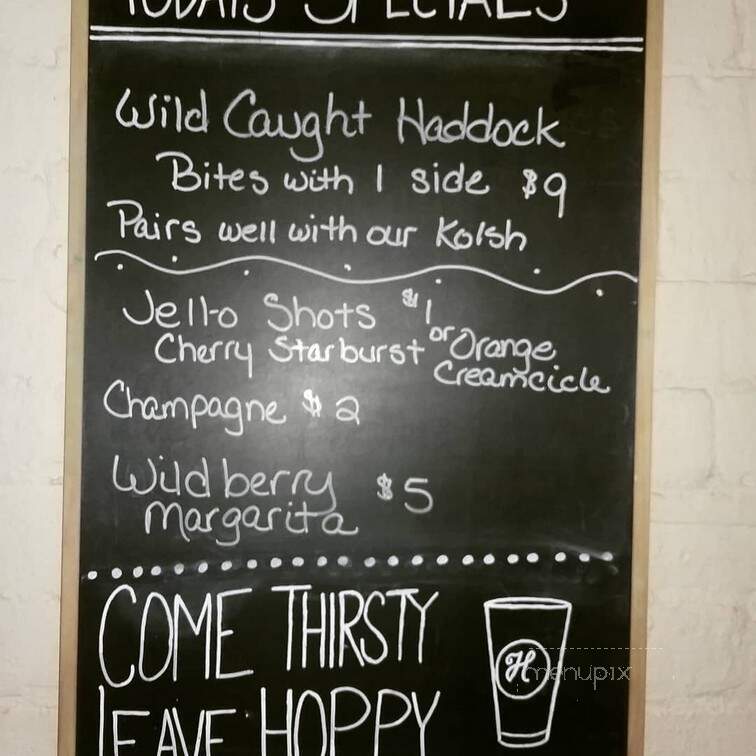 TODAYS SPECIALS
Wild Caught Haddock
Bites with 1 side $9
Pairs well with our Kolsh
Jell-o Shots $1
Cherry Starburst or Orange
Creamcicle
Champagne $2
Wildberry $5
Margarita
COME THIRSTY
LEAVE HOPPY
H
menupix